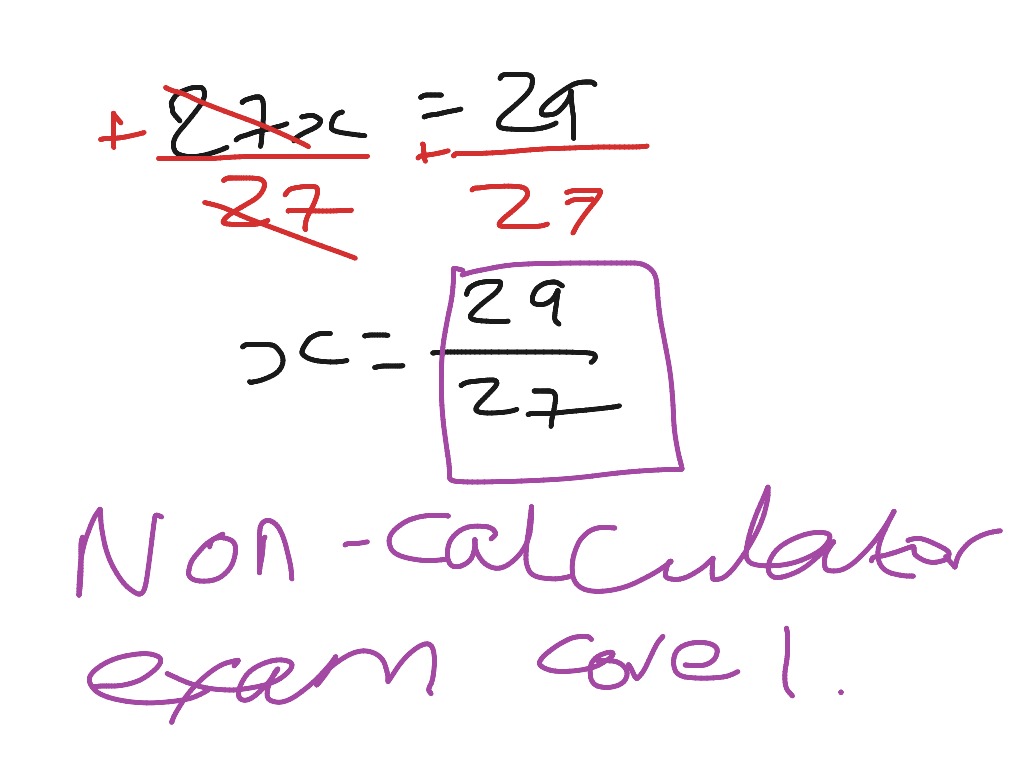 + 27x = + 29
27 27
x = 29
27
Non-calculator
exam core 1.